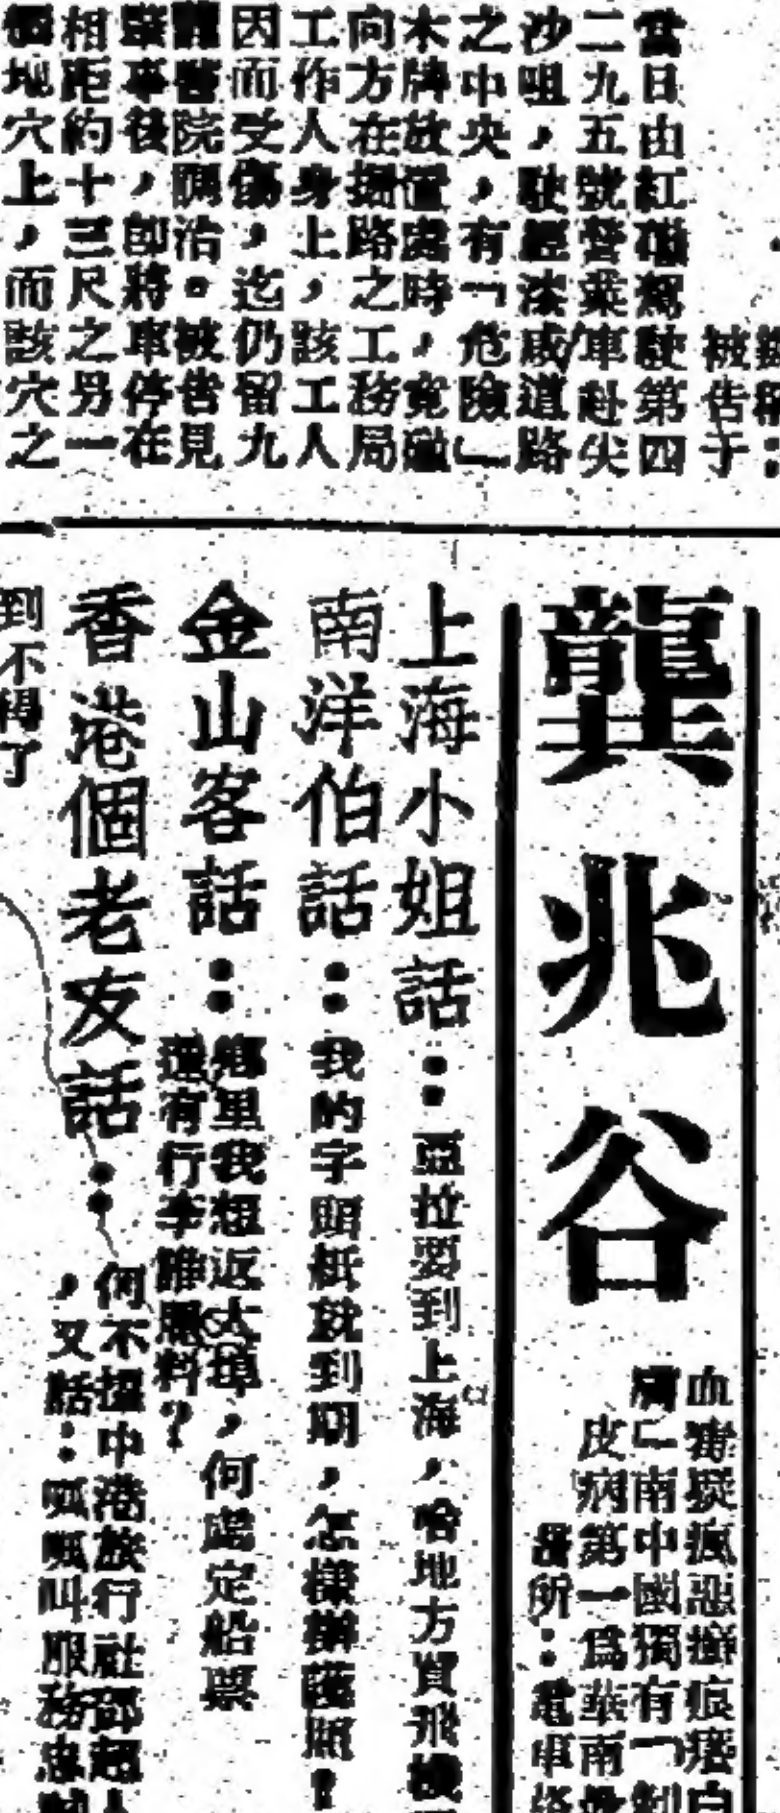 據稱：
被告于
當日由紅磡駕駛第四
二九五號營業車赴尖
沙咀，駛經漆咸道路
之中央，有「危險」
木牌放置處時，竟碰
向方在掘路之工務局
工作人身上，該工人
因而受傷，迄仍留九
龍醫院調治。被告見
肇事後，即將車停在
相距約十三尺之另一
個地穴上，而該穴之
龔兆谷
血毒
南中國獨有
皮病第一爲華南
所：電車
上海小姐話：亞拉要到上海，啥地方買飛機
南洋伯話：我的字頭紙就到期，怎樣辦護照？
金山客話：鄉里我想返大埠，何處定船票
還有行李誰照料？
香港個老友話：何不搵中港旅行社鄧超人
，又話：呱呱叫服務忠
到不得了